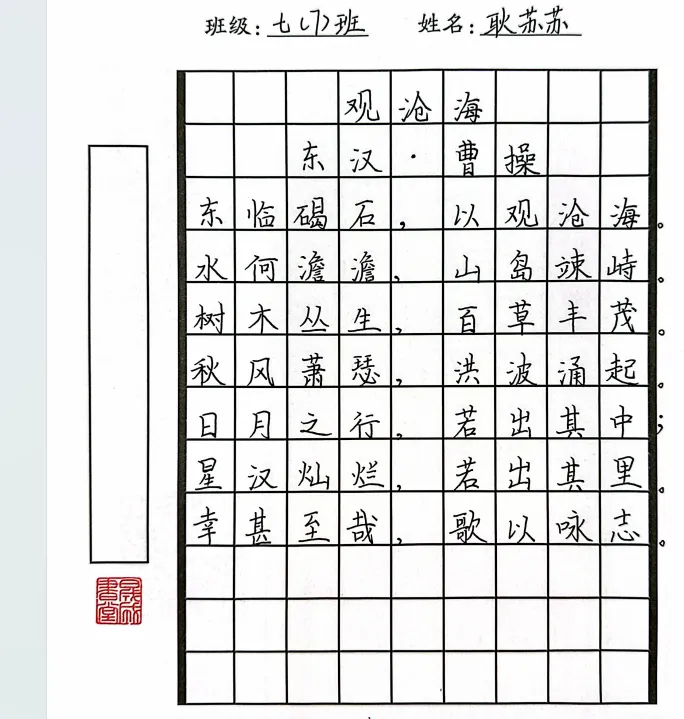 班级：七（7）班 姓名：耿苏苏
观沧海
东汉·曹操
东临碣石，以观沧海。
水何澹澹，山岛竦峙。
树木丛生，百草丰茂。
秋风萧瑟，洪波涌起。
日月之行，若出其中；
星汉灿烂，若出其里。
幸甚至哉，歌以咏志。